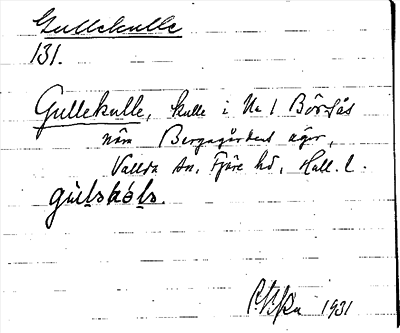 Gullekulle
131.
Gullekulle, kulle i Nr 1 Börsås
nära Bergagårdens ägor,
Vallda sn, Fjäre hd, Hall. l.
1931